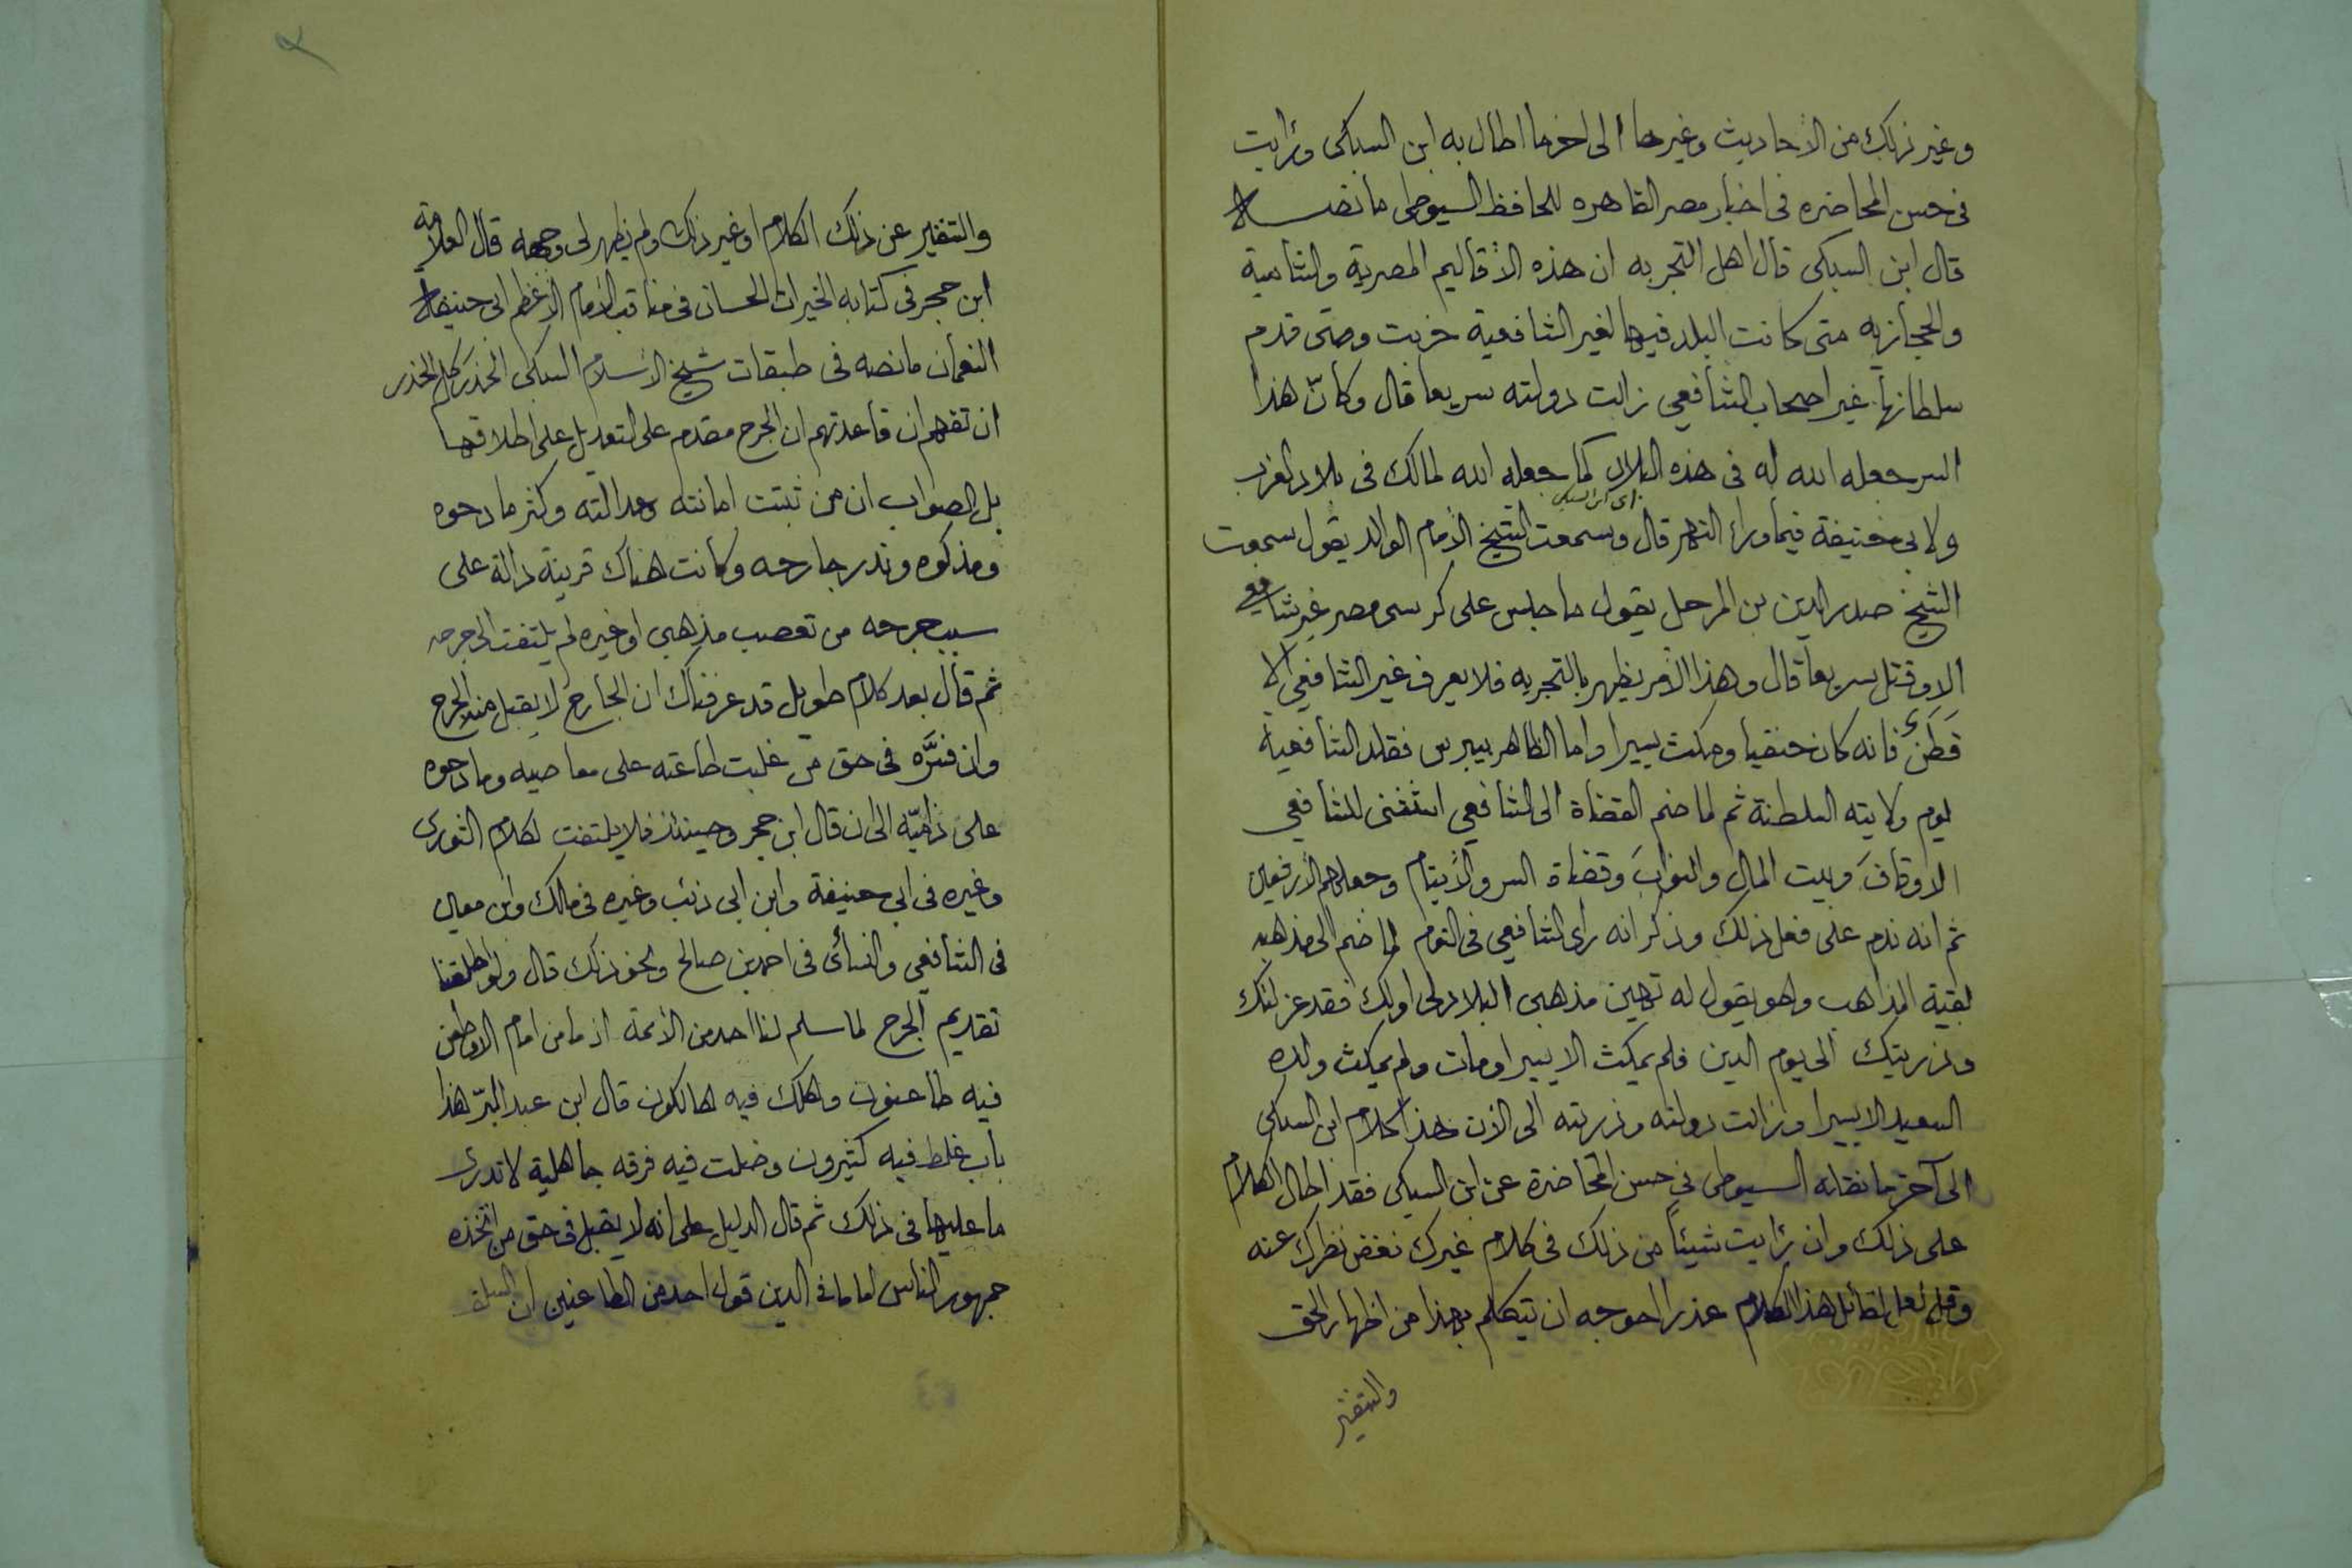 وغير ذلك من الأحاديث وغيرها الى اخر ما اطال به ابن السبكى ورأيت
فى حسن المحاضره فى اخبار مصر القاهره للحافظ السيوطى ما نصه
قال ابن السبكى قال أهل التجربه ان هذه الأقاليم المصرية والشامية
والحجازيه متى كانت البلد فيها لغير الشافعية خربت ومتى قدم
سلطانها غير اصحاب الشافعي زالت دولته سريعا قال وكأنّ هذا
السر جعله الله له فى هذه البلاد كما جعله الله لمالك فى بلاد الغرب
ولابى حنيفة فيما وراء النهر قال وسمعت الشيخ الأمام الوالد يقول سمعت
اى ابن السبكى
الشيخ صدر الدين بن المرحل يقول ما جلس على كرسى مصر غير شافعي
الا وقتل سريعا قال وهذا الأمر يظهر بالتجربه فلا يعرف غير الشافعي الا
قطز فانه كان حنفيا ومكث يسيرا واما الظاهر بيبرس فقلد الشافعية
يوم ولايته السلطنة ثم لما ضم القضاة الى الشافعي استثنى للشافعي
الاوقاف وبيت المال والنواب وقضاة البر والأيتام وجعلهم الأرفعين
ثم انه ندم على فعل ذلك وذكر انه رأى الشافعي فى النوم لما ضم الى مذهبه
بقية المذاهب وهو يقول له تهين مذهبى البلاد لى او لك فقد عزلتك
وذريتك الى يوم الدين فلم يمكث الا يسيرا ومات ولم يمكث ولده
السعيد الا يسيرا وزالت دولته وذريته الى الأن هذا كلام ابن السبكى
الى آخر ما نقله السيوطى فى حسن المحاضرة عن ابن السبكى فقد اطال الكلام
على ذلك وان رأيت شيئاً من ذلك فى كلام غيرك فغض نظرك عنه
وقل لعل لقائل هذا الكلام عذرا احوجه ان تيكلم بهذا من اظهار الحق
والتنفير
والتنفير عن ذلك الكلام او غير ذلك ولم يظهر لى وجهه قال العلامة
ابن حجر فى كتابه الخيرات الحسان فى مناقب الأمام الأعظم ابى حنيفة
النعمان ما نصه فى طبقات شيخ الأسلام السبكى الحذر كل الحذر
ان تفهم ان قاعدتهم ان الجرح مقدم على التعديل على اطلاقها
بل الصواب ان من ثبتت امانته وعدالته وكثر مادحوه
ومذكوه وندر جارحه وكانت هناك قرينة دالة على
سبب جرحه من تعصب مذهبى او غيره لم يلتفت الى جرحه
ثم قال بعد كلام طويل قد عرفناك ان الجارح لا يقبل منه الجرح
وان فسّره فى حق من غلبت طاعته على معاصيه ومادحوه
على ذاميّه الى ان قال ابن حجر وحينئذ فلا يلتفت لكلام الثورى
وغيره فى ابى حنيفة وابن ابى ذئب وغيره فى مالك وابن معين
فى الشافعي والنسائى فى احمد بن صالح ونحو ذلك قال ولو اطلقنا
تقديم الجرح لما سلم لنا احد من الأئمة اذ ما من امام الا وطعن
فيه طاعنون وهلك فيه هالكون قال ابن عبد البرّ هذا
باب غلط فيه كثيرون وضلت فيه فرقه جاهلية لا تدرى
ما عليها فى ذلك ثم قال الدليل على انه لا يقبل فى حق من اتخذه
جمهور الناس اماما فى الدين قول احد من الطاعنين ان السلف